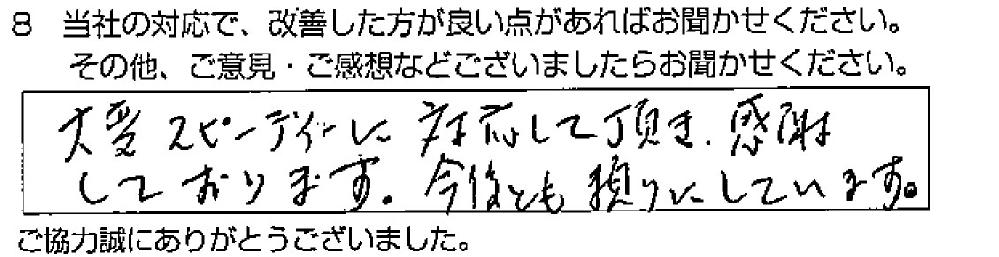 8 当社の対応で、改善した方が良い点があればお聞かせください。
その他、ご意見・ご感想などございましたらお聞かせください。
大変スピーディーに対応して頂き、感謝
しております。今後とも頼りにしています。
ご協力誠にありがとうございました。